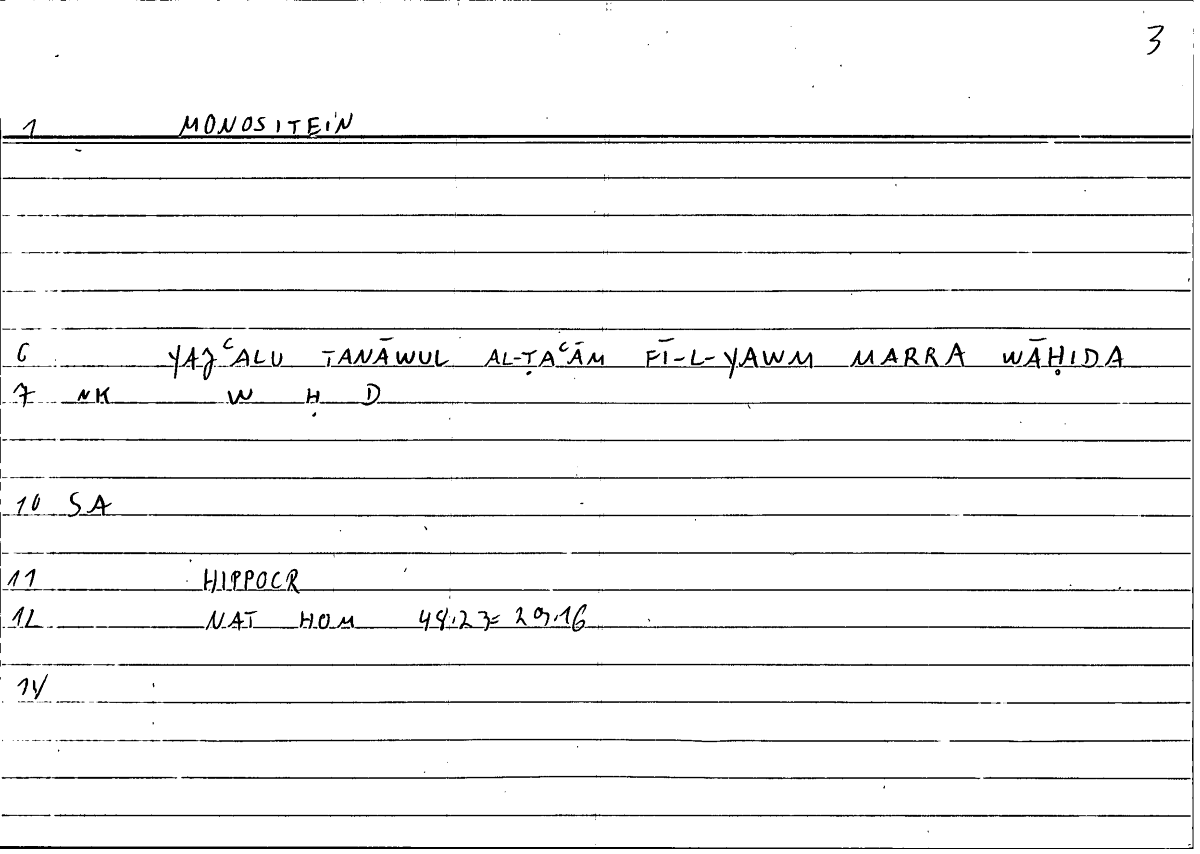 3
1 MONOSITEIN
6 YAJʿALU TANĀWUL AL-ṬAʿĀM FĪ-L-YAWM MARRA WĀḤIDA
7 NK W Ḥ D
10 SA
11 HIPPOCR
12 NAT HOM 48.23= 29.16
14